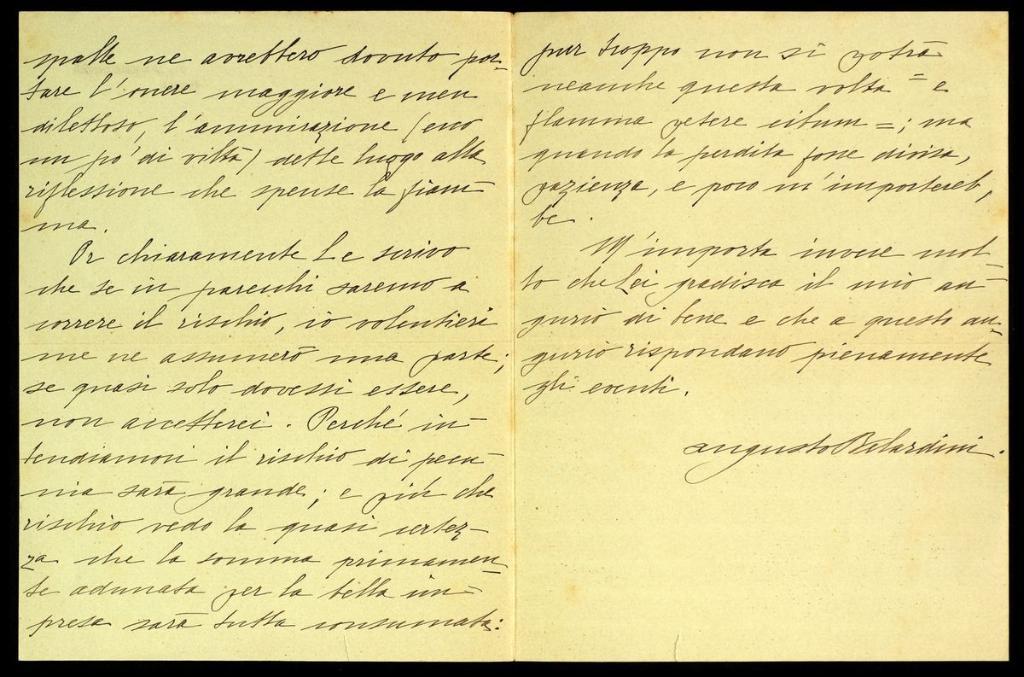 spalle ne avrebbero dovuto por=
tare l'onere maggiore e men
dilettoso, l'ammirazione (ecco
un pò' di viltà) dette luogo alla
riflessione che spense la fiam=
ma.
Or chiaramente Le scrivo
che se in parecchi saremo a
correre il rischio, io volentieri
me ne assumerò una parte;
se quasi solo dovessi essere,
non accetterei. Perché in=
tendiamoci il rischio di pecu=
nia sarà grande; e più che
rischio vedo la quasi certez=
za che la somma primamen=
te adunata per la bella im=
presa sarà tutta consumata:
pur troppo non si potrà
neanche questa volta = e
flamma petere cibum =; ma
quando la perdita fosse divisa,
pazienza, e poco m'importereb,
be.
M'importa invece mol=
to che Lei gradisca il mio au=
gurio di bene e che a questo au=
gurio rispondano pienamente
gli eventi.
Augusto Belardini.